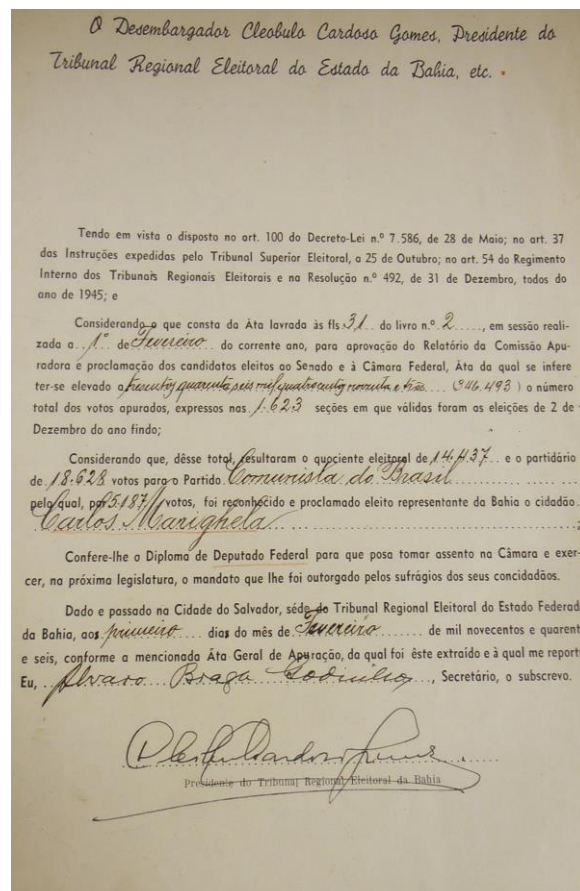 O Desembargador Cleobulo Cardoso Gomes, Presidente do
Tribunal Regional Eleitoral do Estado da Bahia, etc.
Tendo em vista o disposto no art. 100 do Decreto-Lei n.º 7.586, de 28 de Maio; no art. 37
das Instruções expedidas pelo Tribunal Superior Eleitoral, a 25 de Outubro; no art. 54 do Regimento
Interno dos Tribunais Regionais Eleitorais e na Resolução n.º 492, de 31 de Dezembro, todos do
ano de 1945; e
Considerando o que consta da Áta lavrada às fls. 31 do livro n.º 2, em sessão reali-
zada a 1º de Fevereiro do corrente ano, para aprovação do Relatório da Comissão Apu-
radora e proclamação dos candidatos eleitos ao Senado e à Câmara Federal, Áta da qual se infere
ter-se elevado a tresentos quarenta seis mil quatrocentos noventa e três (346.493) o número
total dos votos apurados, expressos nas 1.623 seções em que válidas foram as eleições de 2 de
Dezembro do ano findo;
Considerando que, dêsse total, resultaram o quociente eleitoral de 14.437 e o partidário
de 18.628 votos para o Partido Comunista do Brasil
pelo qual, por 5.187 votos, foi reconhecido e proclamado eleito representante da Bahia o cidadão
Carlos Marighela
Confere-lhe o Diploma de Deputado Federal para que posa tomar assento na Câmara e exer-
cer, na próxima legislatura, o mandato que lhe foi outorgado pelos sufrágios dos seus concidadãos.
Dado e passado na Cidade do Salvador, séde do Tribunal Regional Eleitoral do Estado Federad
da Bahia, aos primeiro dias do mês de Fevereiro de mil novecentos e quarent
e seis, conforme a mencionada Áta Geral de Apuração, da qual foi êste extraído e à qual me report
Eu, Alvaro Braga Godinho, Secretário, o subscrevo.
Presidente do Tribunal Regional Eleitoral da Bahia